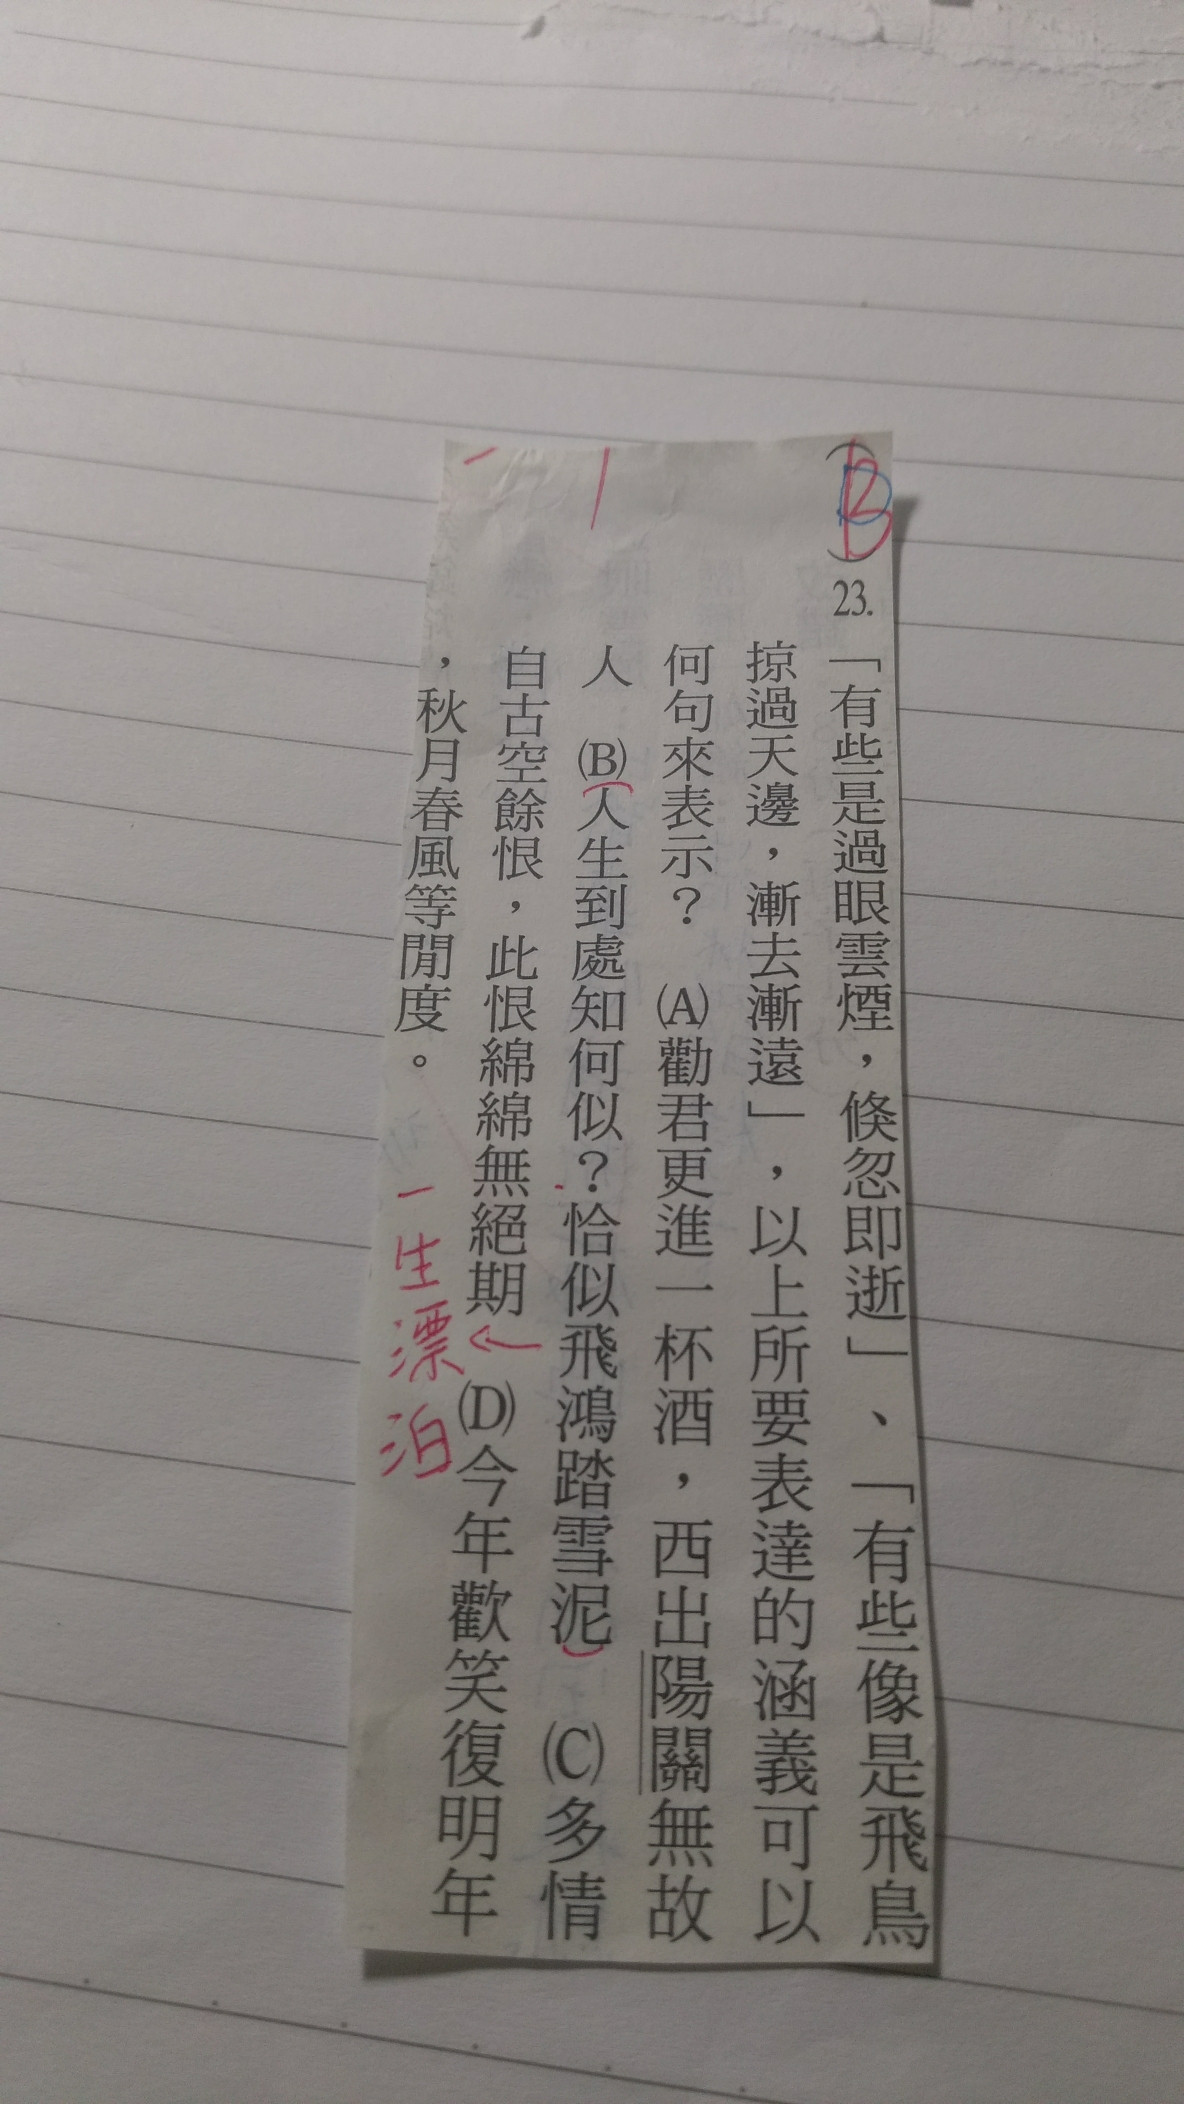 (B) 23.
「有些是過眼雲煙，倏忽即逝」、「有些像是飛鳥
掠過天邊，漸去漸遠」，以上所要表達的涵義可以
何句來表示？ (A)勸君更進一杯酒，西出陽關無故
人 (B)人生到處知何似？恰似飛鴻踏雪泥 (C)多情
自古空餘恨，此恨綿綿無絕期 (D)今年歡笑復明年
，秋月春風等閒度。
一生漂泊